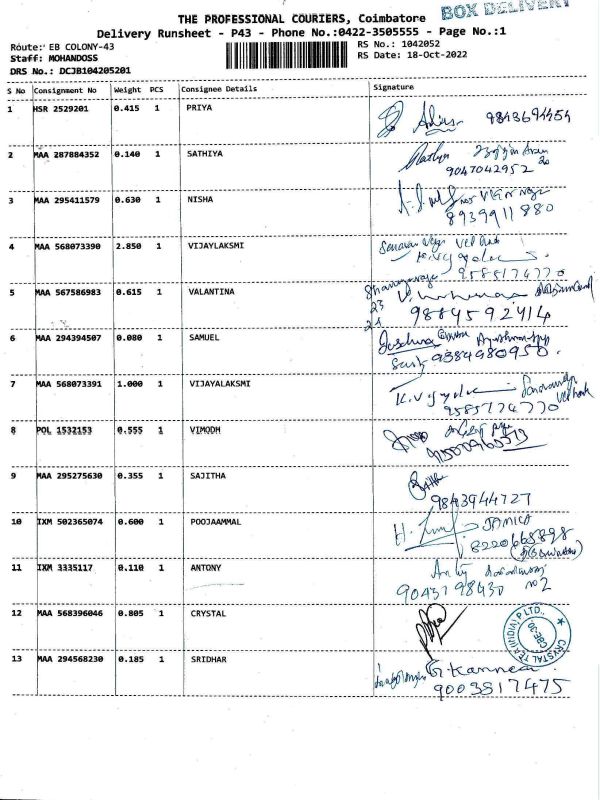 BOX DELIVERY
THE PROFESSIONAL COURIERS, Coimbatore
Delivery Runsheet - P43 - Phone No.:0422-3505555 - Page No.:1
Route: EB COLONY-43 RS No.: 1042052
Staff: MOHANDOSS RS Date: 18-Oct-2022
DRS No.: DCJB104205201
S No Consignment No Weight PCS Consignee Details Signature
1 HSR 2529201 0.415 1 PRIYA
9843694454
2 MAA 287884352 0.140 1 SATHIYA
9047042952
3 MAA 295411579 0.630 1 NISHA
8939911880
4 MAA 568073390 2.850 1 VIJAYLAKSMI
9585174770
5 MAA 567586983 0.615 1 VALANTINA
23
24
9884592414
6 MAA 294394507 0.080 1 SAMUEL
9384980950
7 MAA 568073391 1.000 1 VIJAYALAKSMI
9585174770
8 POL 1532153 0.555 1 VIMODH
9 MAA 295275630 0.355 1 SAJITHA
9843944727
10 IXM 502365074 0.600 1 POOJAAMMAL
8220668898
11 IXM 3335117 0.110 1 ANTONY
9043798430 no 2
12 MAA 568396046 0.805 1 CRYSTAL
CRYSTAL TEA (INDIA) P LTD.,
CBE-36
13 MAA 294568230 0.185 1 SRIDHAR
9003817475